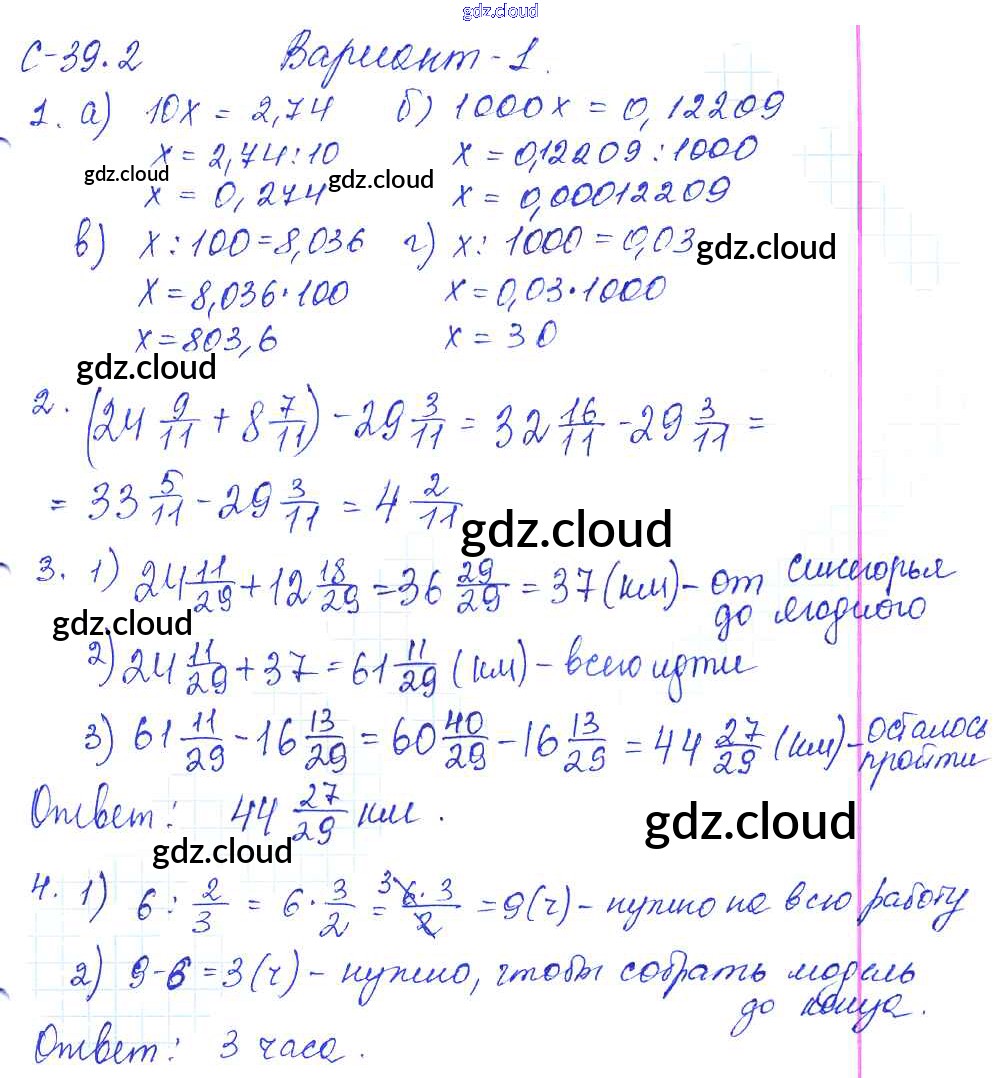 gdz.cloud
С-39.2 Вариант-1.
1. а) 10х = 2,74 б) 1000х = 0,12209
х = 2,74:10 х = 0,12209:1000
gdz.cloud х = 0,274 gdz.cloud х = 0,00012209
в) х:100=8,036 г) х: 1000=0,03 gdz.cloud
х=8,036·100 х=0,03·1000
х=803,6 х = 30
gdz.cloud
2. (24 9/11 + 8 7/11) - 29 3/11 = 32 16/11 - 29 3/11 =
= 33 5/11 - 29 3/11 = 4 2/11
gdz.cloud
3. 1) 24 11/29 + 12 18/29 = 36 29/29 = 37 (км) - от Синегорья
до Ягодного
gdz.cloud
2) 24 11/29 + 37 = 61 11/29 (км) - всего идти
3) 61 11/29 - 16 13/29 = 60 40/29 - 16 13/29 = 44 27/29 (км) - осталось
пройти
Ответ: 44 27/29 км.
gdz.cloud
gdz.cloud
4. 1) 6 : 2/3 = 6 · 3/2 = 3 6·3/2 = 9(ч) - нужно на всю работу
2) 9-6 = 3(ч) - нужно, чтобы собрать модель
до конца.
Ответ: 3 часа.